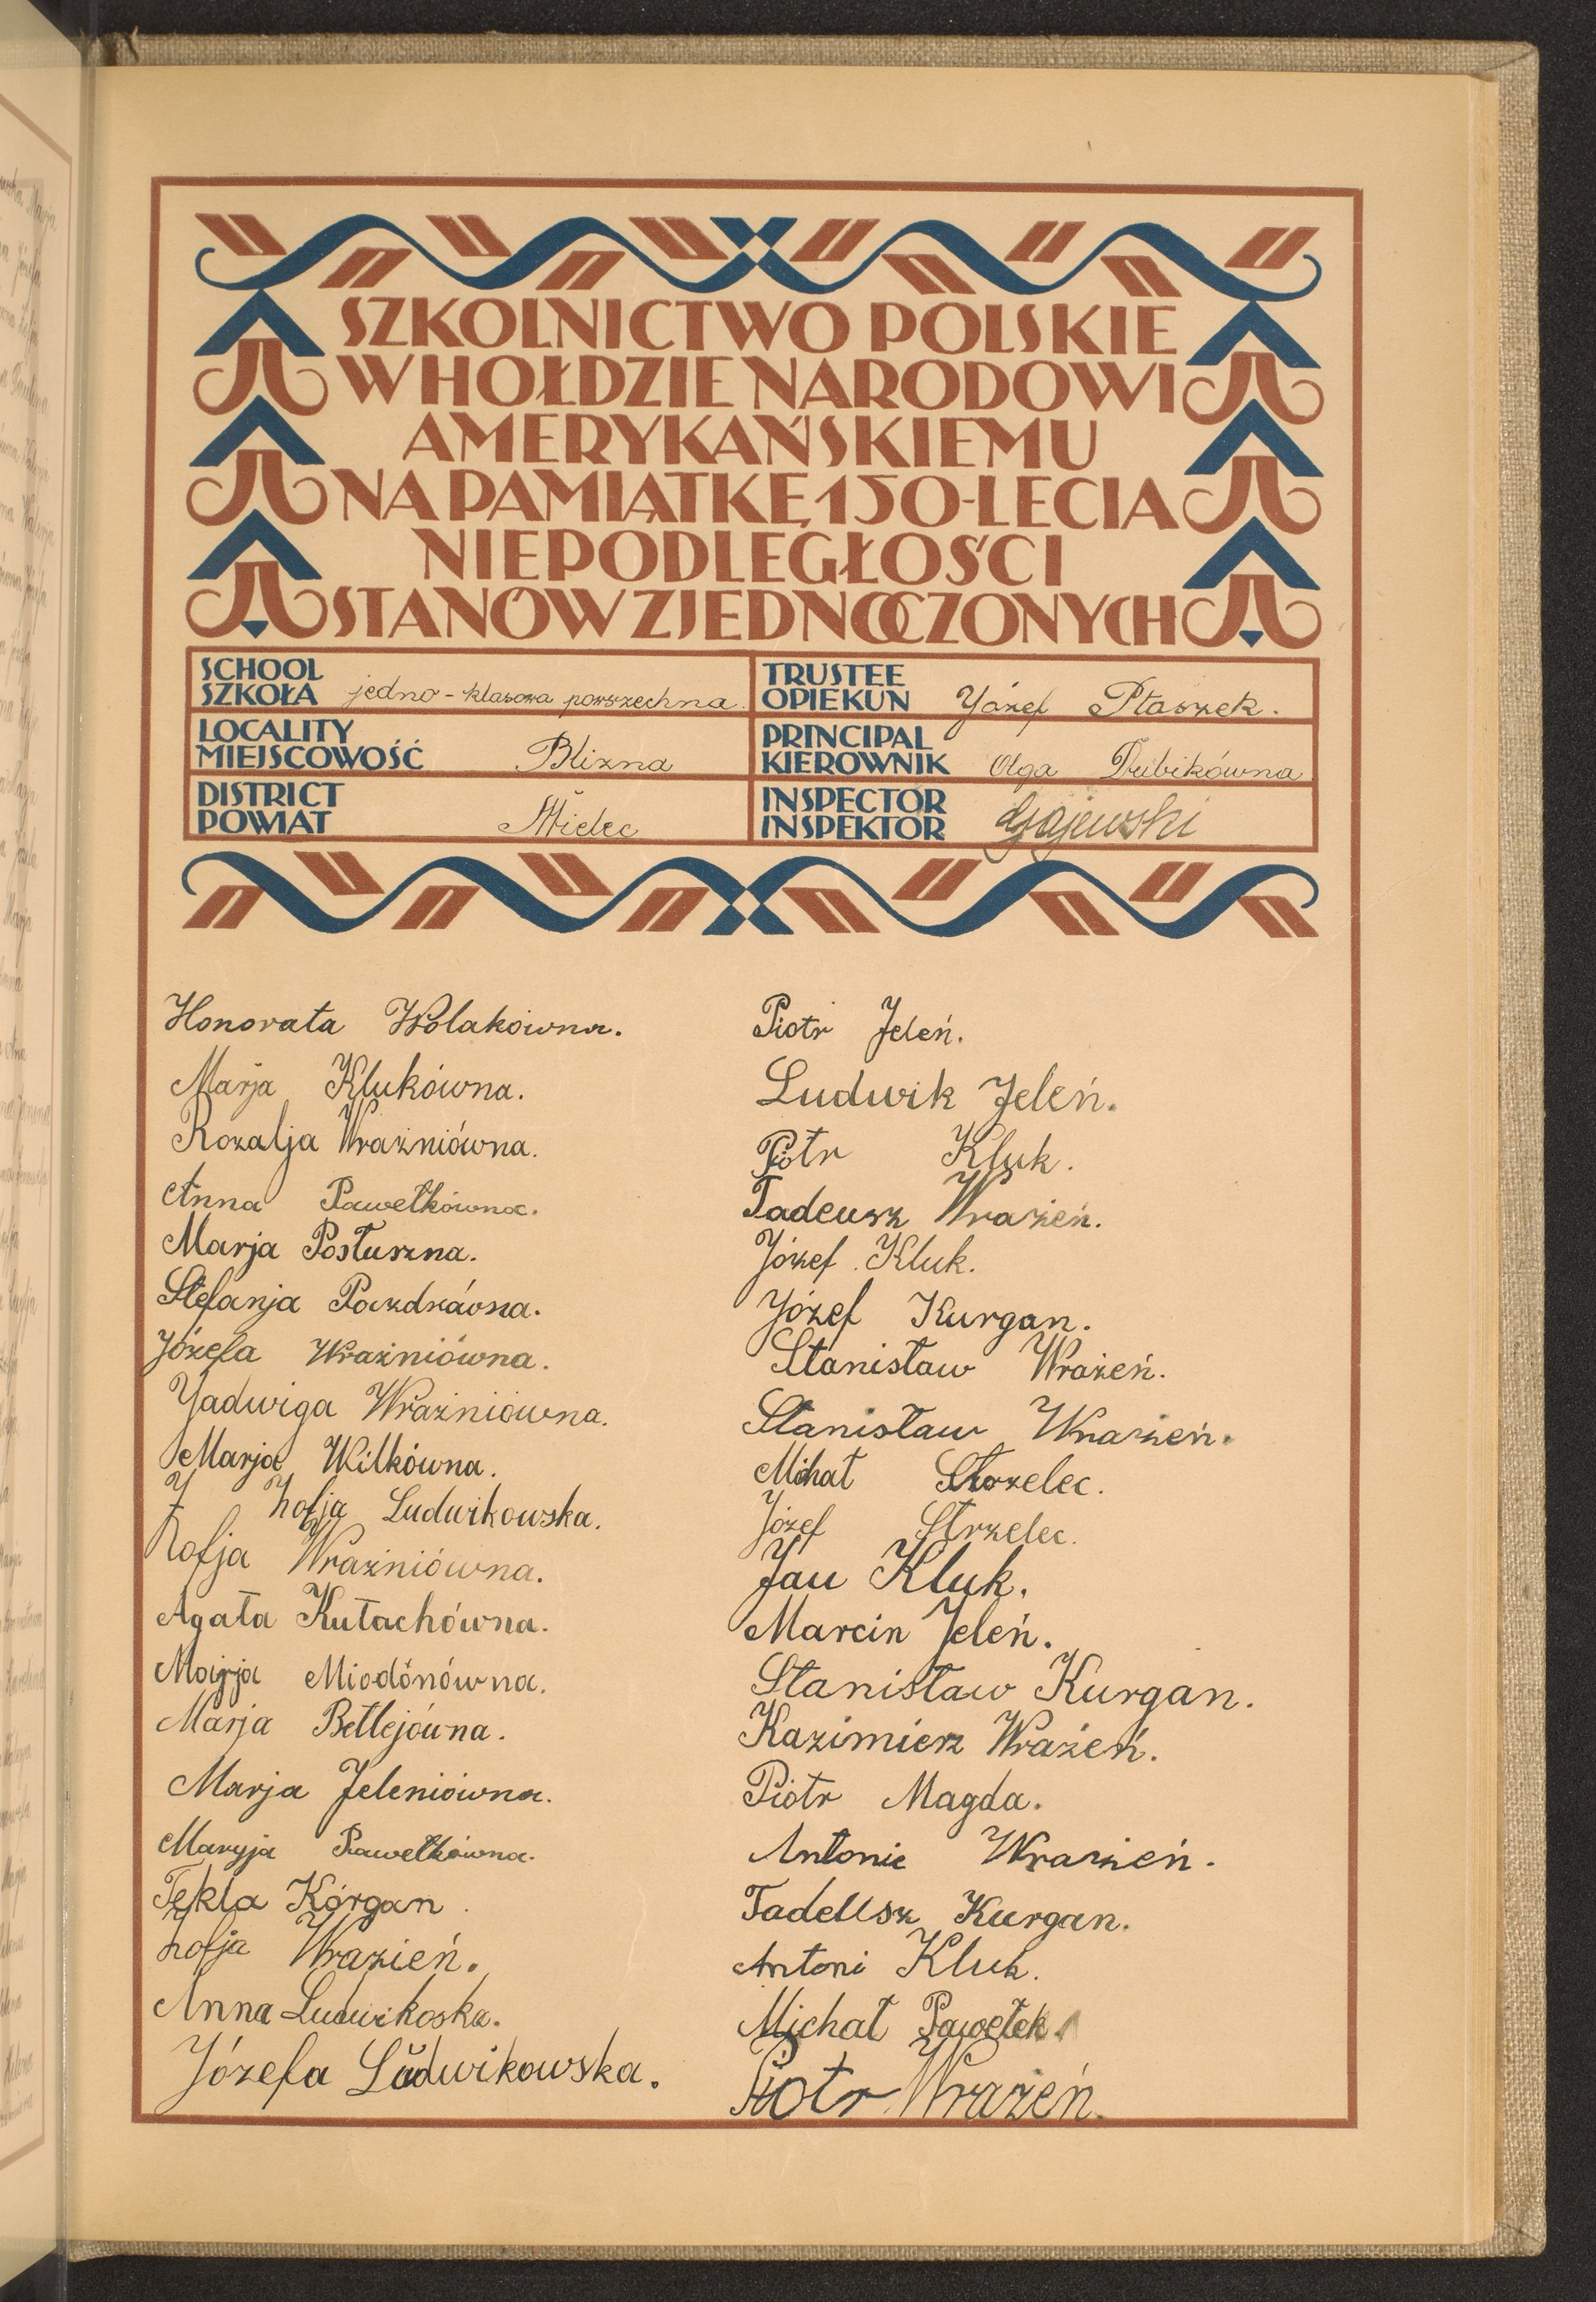 SZKOLNICTWO POLSKIE
W HOŁDZIE NARODOWI
AMERYKAŃSKIEMU
NA PAMIĄTKĘ 150-LECIA
NIEPODLEGŁOŚCI
STANÓW ZJEDNOCZONYCH
SCHOOL
SZKOŁA jedno-klasowa powszechna
TRUSTEE
OPIEKUN Józef Ptaszek.
LOCALITY
MIEJSCOWOŚĆ Blizna
PRINCIPAL
KIEROWNIK Olga Dubikówna
DISTRICT
POWIAT Mielec
INSPECTOR
INSPEKTOR Gajewski
Honorata Wolakówna.
Marja Klukówna.
Rozalja Wraźniówna.
Anna Pawełkówna.
Marja Posłuszna.
Stefanja Pazdrówna.
Józefa Wraźniówna.
Jadwiga Wraźniówna.
Marja Wilkówna.
Zofja Ludwikowska.
Zofja Wraźniówna.
Agata Kułachówna.
Marja Miodónówna.
Marja Betlejówna.
Marja Jeleniówna.
Maryja Pawełkówna.
Tekla Kórgan.
Zofja Wrazień.
Anna Ludwikoska.
Józefa Ludwikowska.
Piotr Jeleń.
Ludwik Jeleń.
Piotr Kluk.
Tadeusz Wrażeń.
Józef Kluk.
Józef Kurgan.
Stanisław Wrażeń.
Stanisław Wrazień.
Michał Strzelec.
Józef Strzelec.
Jan Kluk.
Marcin Jeleń.
Stanisław Kurgan.
Kazimierz Wrażeń.
Piotr Magda.
Antonie Wrazień.
Tadeusz Kurgan.
Antoni Kluk.
Michał Pawełek.
Piotr Wrażeń.